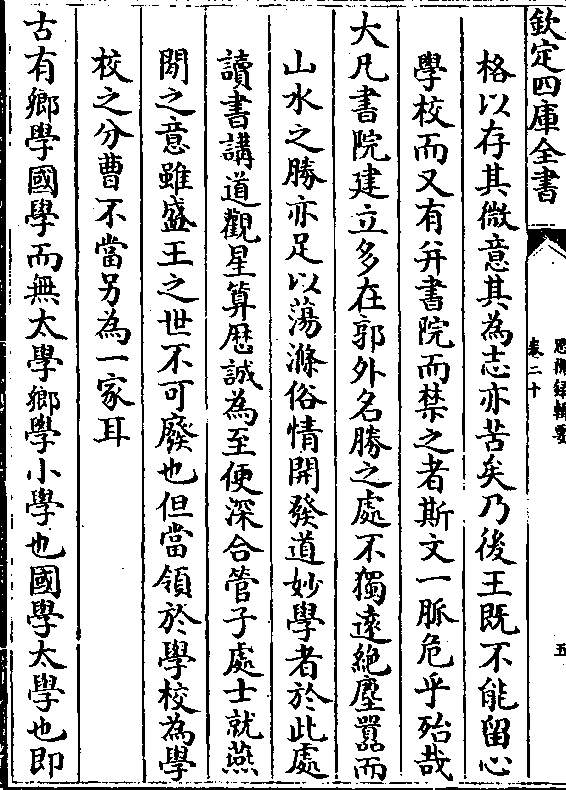 欽定四庫全書
思辨録輯要
卷二十
五
格以存其微意其為志亦苦矣乃後王既不能留心
學校而又有并書院而禁之者斯文一脈危乎殆哉
大凡書院建立多在郭外名勝之處不獨遠絶塵囂而
山水之勝亦足以蕩滌俗情開發道妙學者於此處
讀書講道觀星算厯誠為至便深合管子處士就燕
閒之意雖盛王之世不可廢也但當領於學校為學
校之分曹不當另為一家耳
古有鄉學國學而無太學鄉學小學也國學太學也即